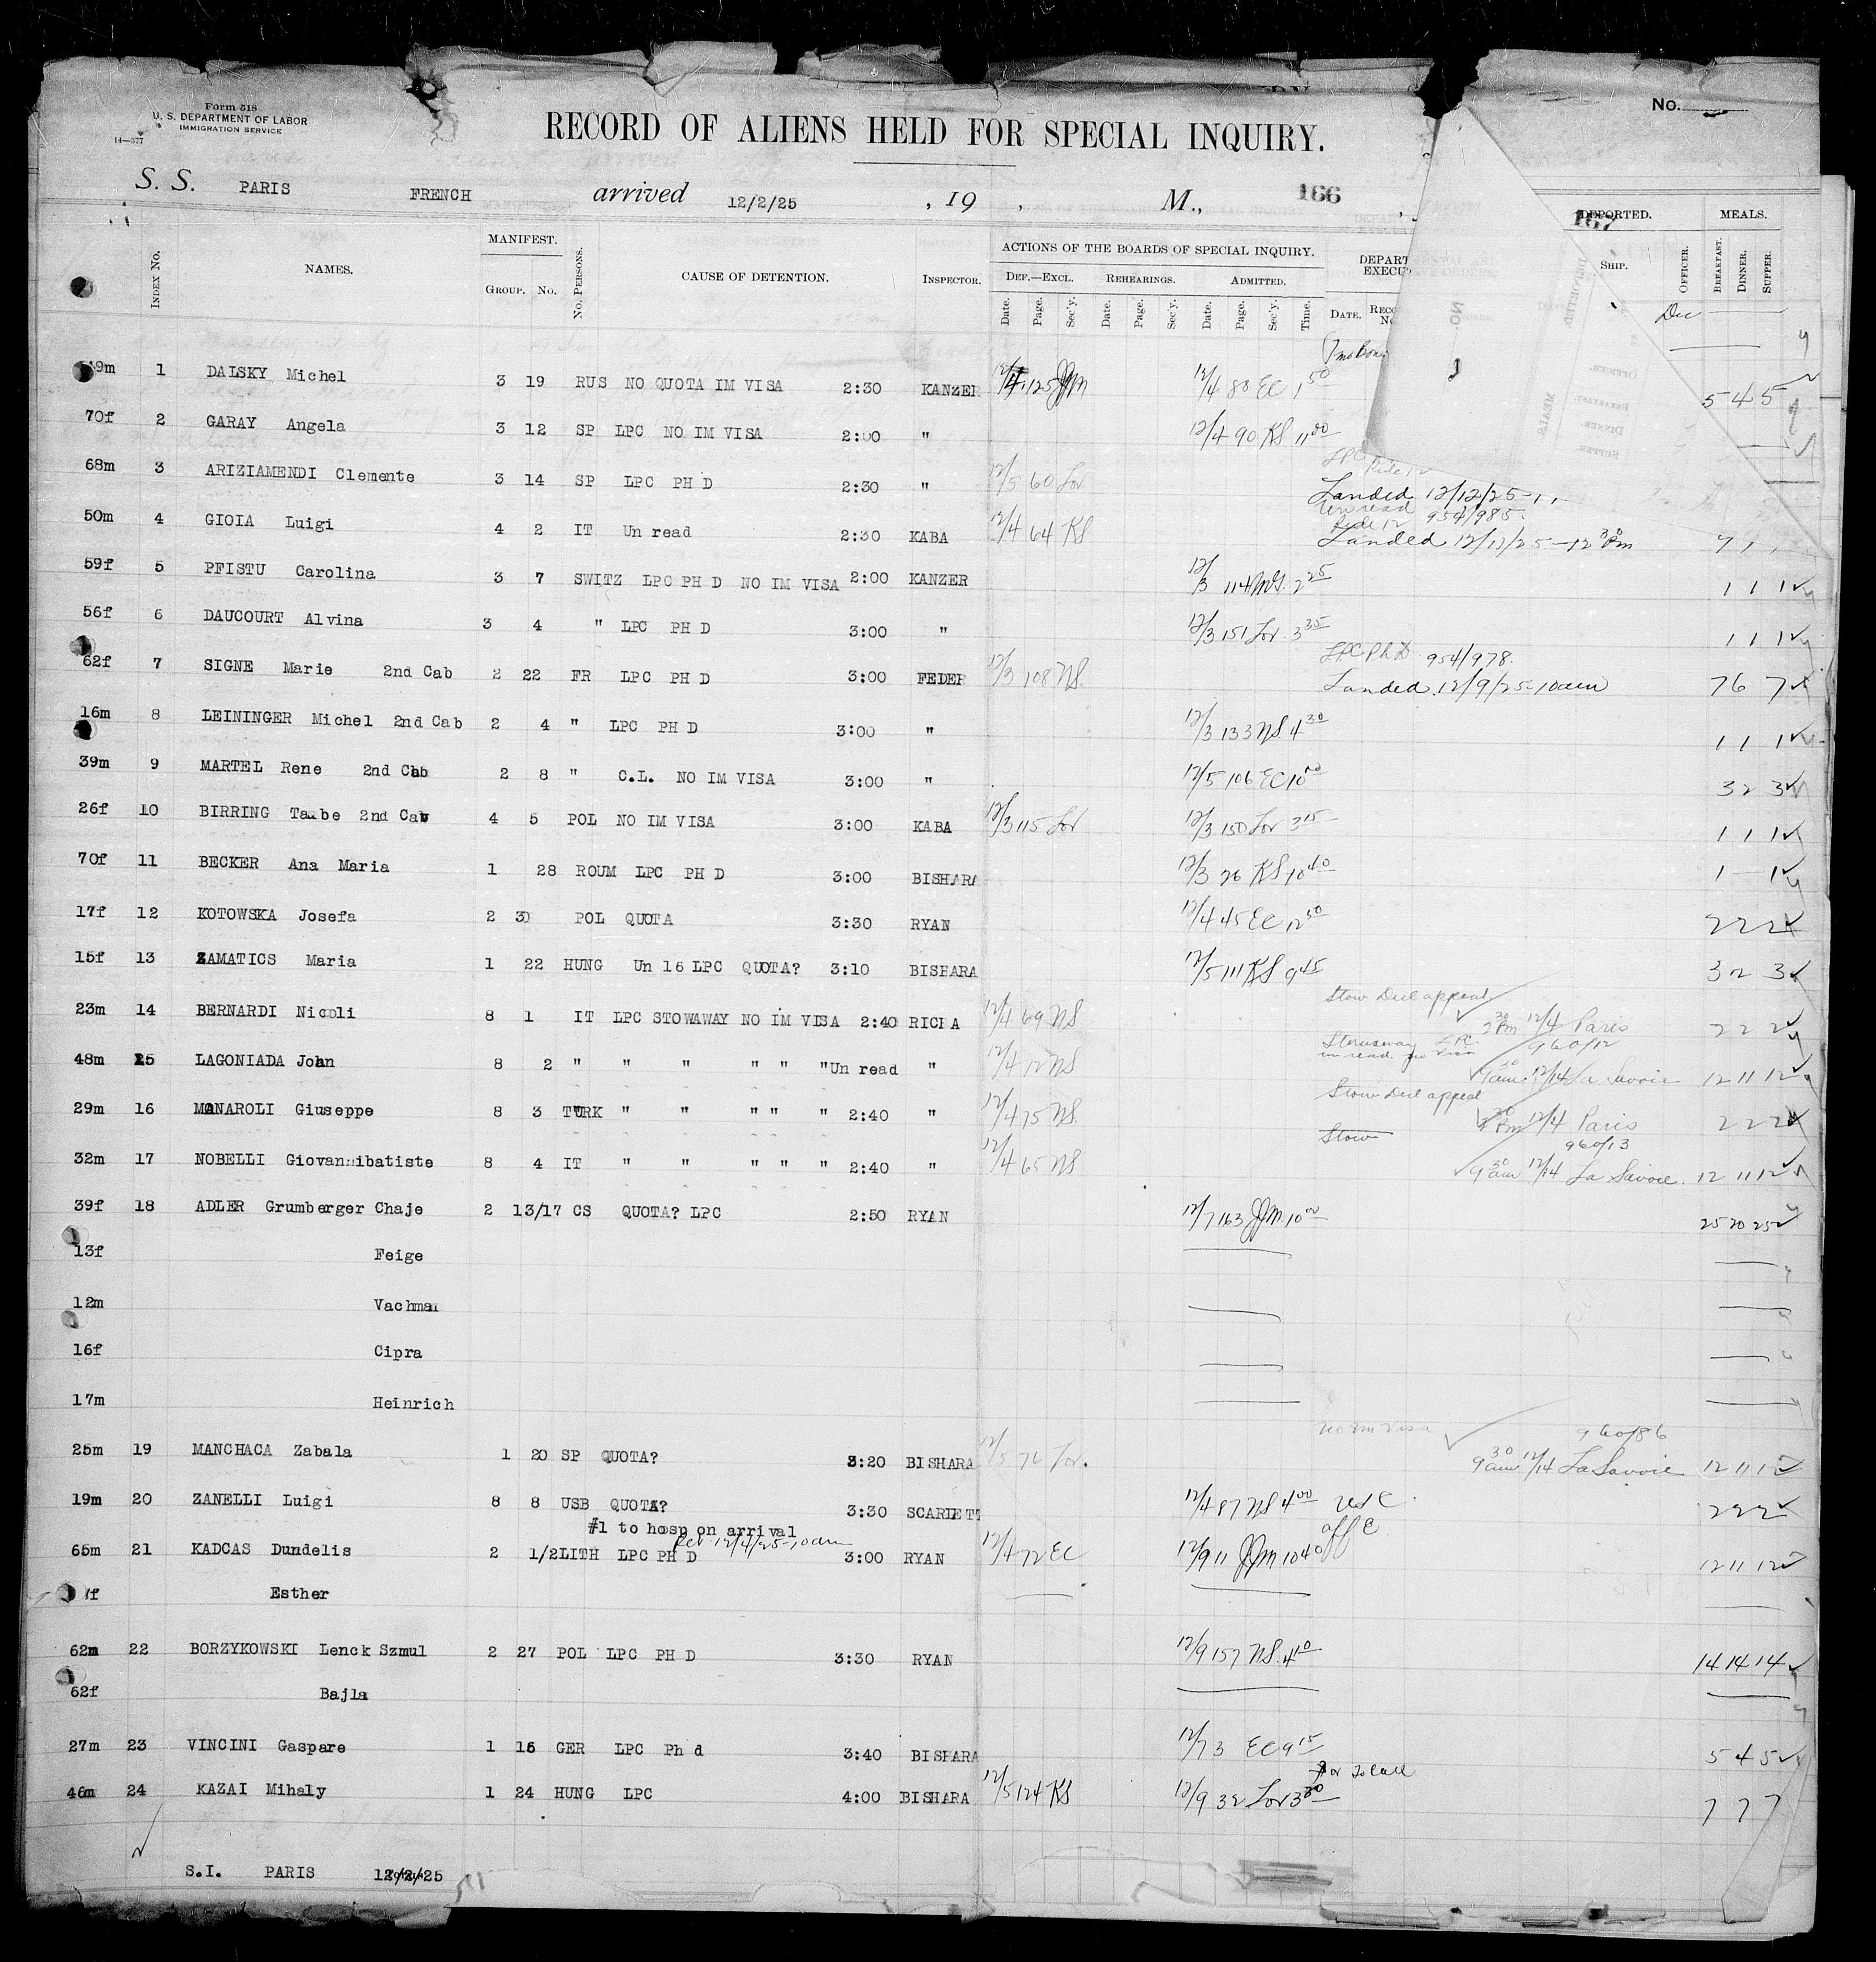 Form 518
U. S. DEPARTMENT OF LABOR
IMMIGRATION SERVICE
14—377
No.
RECORD OF ALIENS HELD FOR SPECIAL INQUIRY.
S. S. PARIS FRENCH arrived 12/2/25 , 19 , M., 166
167
DEPORTED. MEALS.
INDEX NO. NAMES. MANIFEST. GROUP. NO. NO. PERSONS. CAUSE OF DETENTION. INSPECTOR. ACTIONS OF THE BOARDS OF SPECIAL INQUIRY. DEF.—EXCL. REHEARINGS. ADMITTED. SHIP. OFFICER. BREAKFAST. DINNER. SUPPER.
Date. Page. Sec'y. Date. Page. Sec'y. Date. Page. Sec'y. Time. DATE.
1 DALSKY Michel 3 19 RUS NO QUOTA IM VISA 2:30 KANZER 12/4 125 JJM 12/4 80 EC 1 50 5 4 5
70f 2 GARAY Angela 3 12 SP LPC NO IM VISA 2:00 " 12/4 90 KS 11 00
68m 3 ARIZIAMENDI Clemente 3 14 SP LPC PH D 2:30 " 12/5 60 Lor Landed 12/12/25
Un read 954/985
50m 4 GIOIA Luigi 4 2 IT Un read 2:30 KABA 12/4 64 KS Landed 12/12/25-12 30 Pm
59f 5 PFISTU Carolina 3 7 SWITZ LPC PH D NO IM VISA 2:00 KANZER 12/3 114 2 25 1 1 1
56f 6 DAUCOURT Alvina 3 4 " LPC PH D 3:00 " 12/3 151 Lor 3 35 1 1 1
LPC Ph D 954/978.
62f 7 SIGNE Marie 2nd Cab 2 22 FR LPC PH D 3:00 FEDER 12/3 108 NS Landed 12/9/25-10am 7 6 7
16m 8 LEININGER Michel 2nd Cab 2 4 " LPC PH D 3:00 " 12/3 133 NS 4 30 1 1 1
39m 9 MARTEL Rene 2nd Cab 2 8 " C.L. NO IM VISA 3:00 " 12/5 106 EC 10 3 2 3
26f 10 BIRRING Taube 2nd Cab 4 5 POL NO IM VISA 3:00 KABA 12/3 115 Lor 12/3 150 Lor 3 15 1 1 1
70f 11 BECKER Ana Maria 1 28 ROUM LPC PH D 3:00 BISHARA 12/3 26 KS 10 40 1 – 1
17f 12 KOTOWSKA Josefa 2 30 POL QUOTA 3:30 RYAN 12/4 45 EC 12 50 2 2 2
15f 13 ZAMATICS Maria 1 22 HUNG Un 16 LPC QUOTA? 3:10 BISHARA 12/5 111 KS 9 45 3 2 3
Stow Decl appeal
23m 14 BERNARDI Nicoli 8 1 IT LPC STOWAWAY NO IM VISA 2:40 RICHA 12/4 69 NS 2 30 Pm 12/4 Paris 2 2 2
Stowaway LPC 960/12
un read. no visa
48m 15 LAGONIADA John 8 2 " " " " " " Un read " 12/4 72 NS 9 am 12/14 La Savoie 12 11 12
Stow Decl appeal
29m 16 MONAROLI Giuseppe 8 3 TURK " " " " " 2:40 " 12/4 75 NS. 2 30 Pm 12/4 Paris 2 2 2
Stow 960/13
32m 17 NOBELLI Giovannibatiste 8 4 IT " " " " " 2:40 " 12/4 65 NS 9 30 am 12/14 La Savoie. 12 11 12
39f 18 ADLER Grumberger Chaje 2 13/17 CS QUOTA? LPC 2:50 RYAN 12/7 163 JJM 10 00 25 20 25
13f Feige
12m Vachman
16f Cipra
17m Heinrich
no im visa 960/86
25m 19 MANCHACA Zabala 1 20 SP QUOTA? 3:20 BISHARA 12/5 76 Lor. 9 30 am 12/14 La Savoie 12 11 12
19m 20 ZANELLI Luigi 8 8 USB QUOTA? 3:30 SCARLETT 12/4 87 NS 4 00 2 2 2
#1 to hosp on arrival
Rel 12/4/25-10am
65m 21 KADCAS Dundelis 2 1/2 LITH LPC PH D 3:00 RYAN 12/4 72 EC 12/9 11 JJM 10 40 12 11 12
Esther
62m 22 BORZYKOWSKI Lenck Szmul 2 27 POL LPC PH D 3:30 RYAN 12/9 157 NS 4 40 14 14 14
62f Bajla
27m 23 VINCINI Gaspare 1 15 GER LPC Ph d 3:40 BISHARA 12/7 3 EC 9 15 5 4 5
46m 24 KAZAI Mihaly 1 24 HUNG LPC 4:00 BISHARA 12/5 124 KS 12/9 32 Lor 3 30 7 7 7
S.I. PARIS 12/2/25